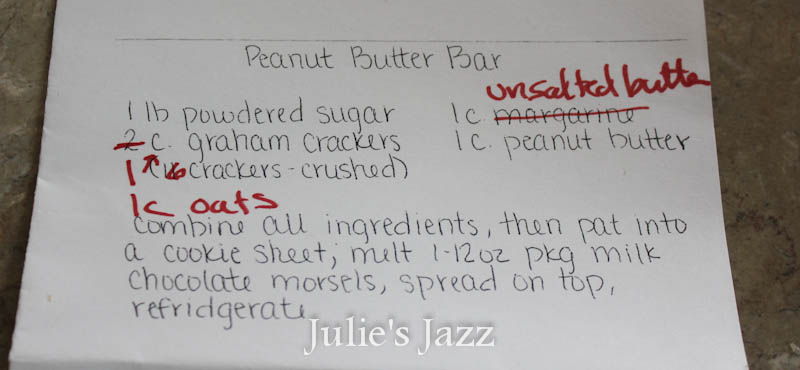 Peanut Butter Bar
unsalted butter
1 lb powdered sugar
1 c. margarine
2 c. graham crackers
1 c. peanut butter
1 crackers - crushed)
1 c oats
Combine all ingredients, then pat into
a cookie sheet; melt 1-12oz pkg milk
chocolate morsels, spread on top,
refridgerate
Julie's Jazz